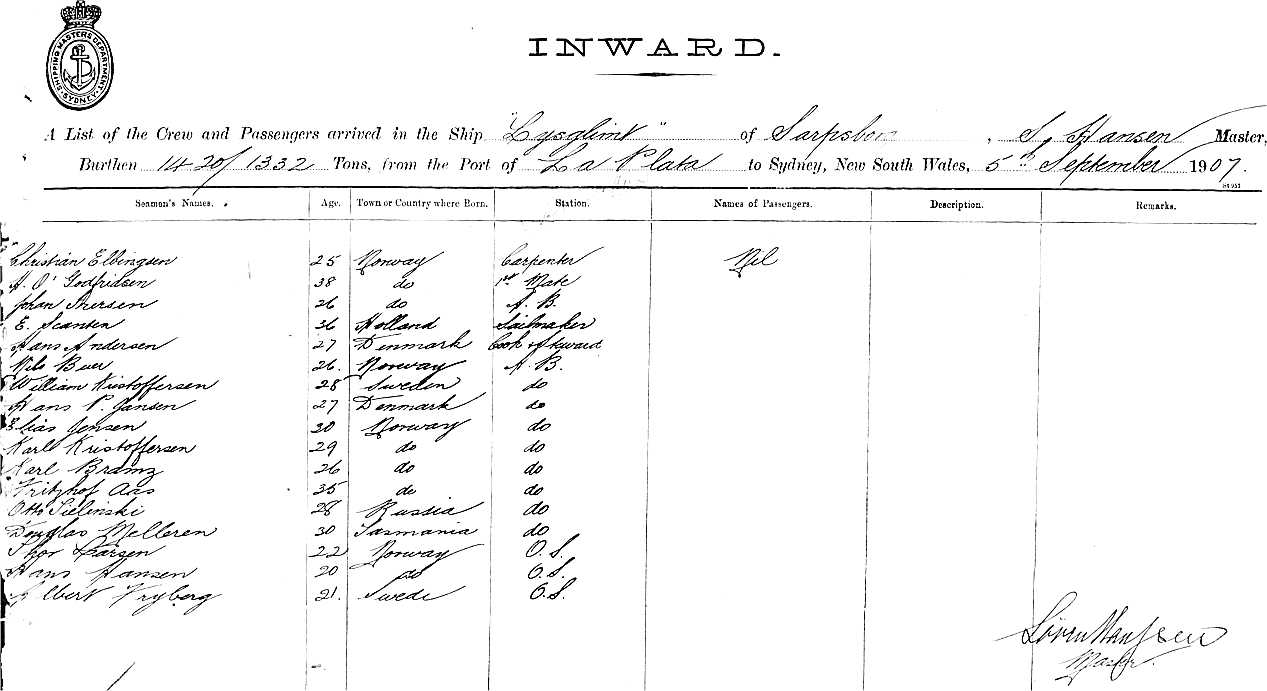 SHIPPING MASTERS DEPARTMENT. SYDNEY.
INWARD.
A List of the Crew and Passengers arrived in the Ship "Lysglimt" of Sarpsborg, S. Hansen Master,
Burthen 1420/1332 Tons, from the Port of La Plata to Sydney, New South Wales, 5th September 1907.
Seaman's Names. Age. Town or Country where Born. Station. Names of Passengers. Description. Remarks.
Christian Ellingsen 25 Norway Carpenter Nil
A. O. Godfridsen 38 do 1st Mate
Johan Iversen 26 do A. B.
E. Scansen 36 Holland Sailmaker
Hans Andersen 27 Denmark Cook & Steward
Nils Buer 26. Norway A. B.
William Kistoffersen 28 Sweden do
Hans P. Jansen 27 Denmark do
Elias Jensen 30 Norway do
Karl Kristoffersen 29 do do
Karl 26 do do
Fritzhof Aas 35 do do
Otto Sielinski 28 Russia do
Douglas Melleren 30 Tasmania do
Thor Larsen 22 Norway O. S.
Hans Hansen 20 do O. S.
Albert Fryberg 21. Swede O. S.
Søren Hansen
Master.